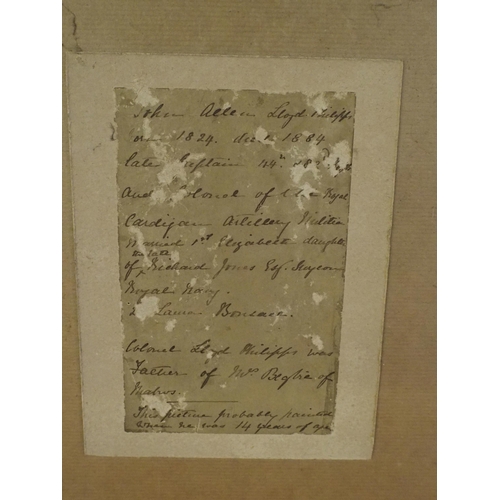 John Allen Lloyd Philipps
1824. died 1884
late Captain 44th 82nd
And Colonel of the Royal
Cardigan Artillery Militia
Married 1st Elizabeth daughter
of the late Richard Jones Esq. Surgeon
Royal Navy.
2 Laura Bonsall.
Colonel Lloyd Philipps was
Father of Mrs of
This picture probably painted
when he was 14 years of age